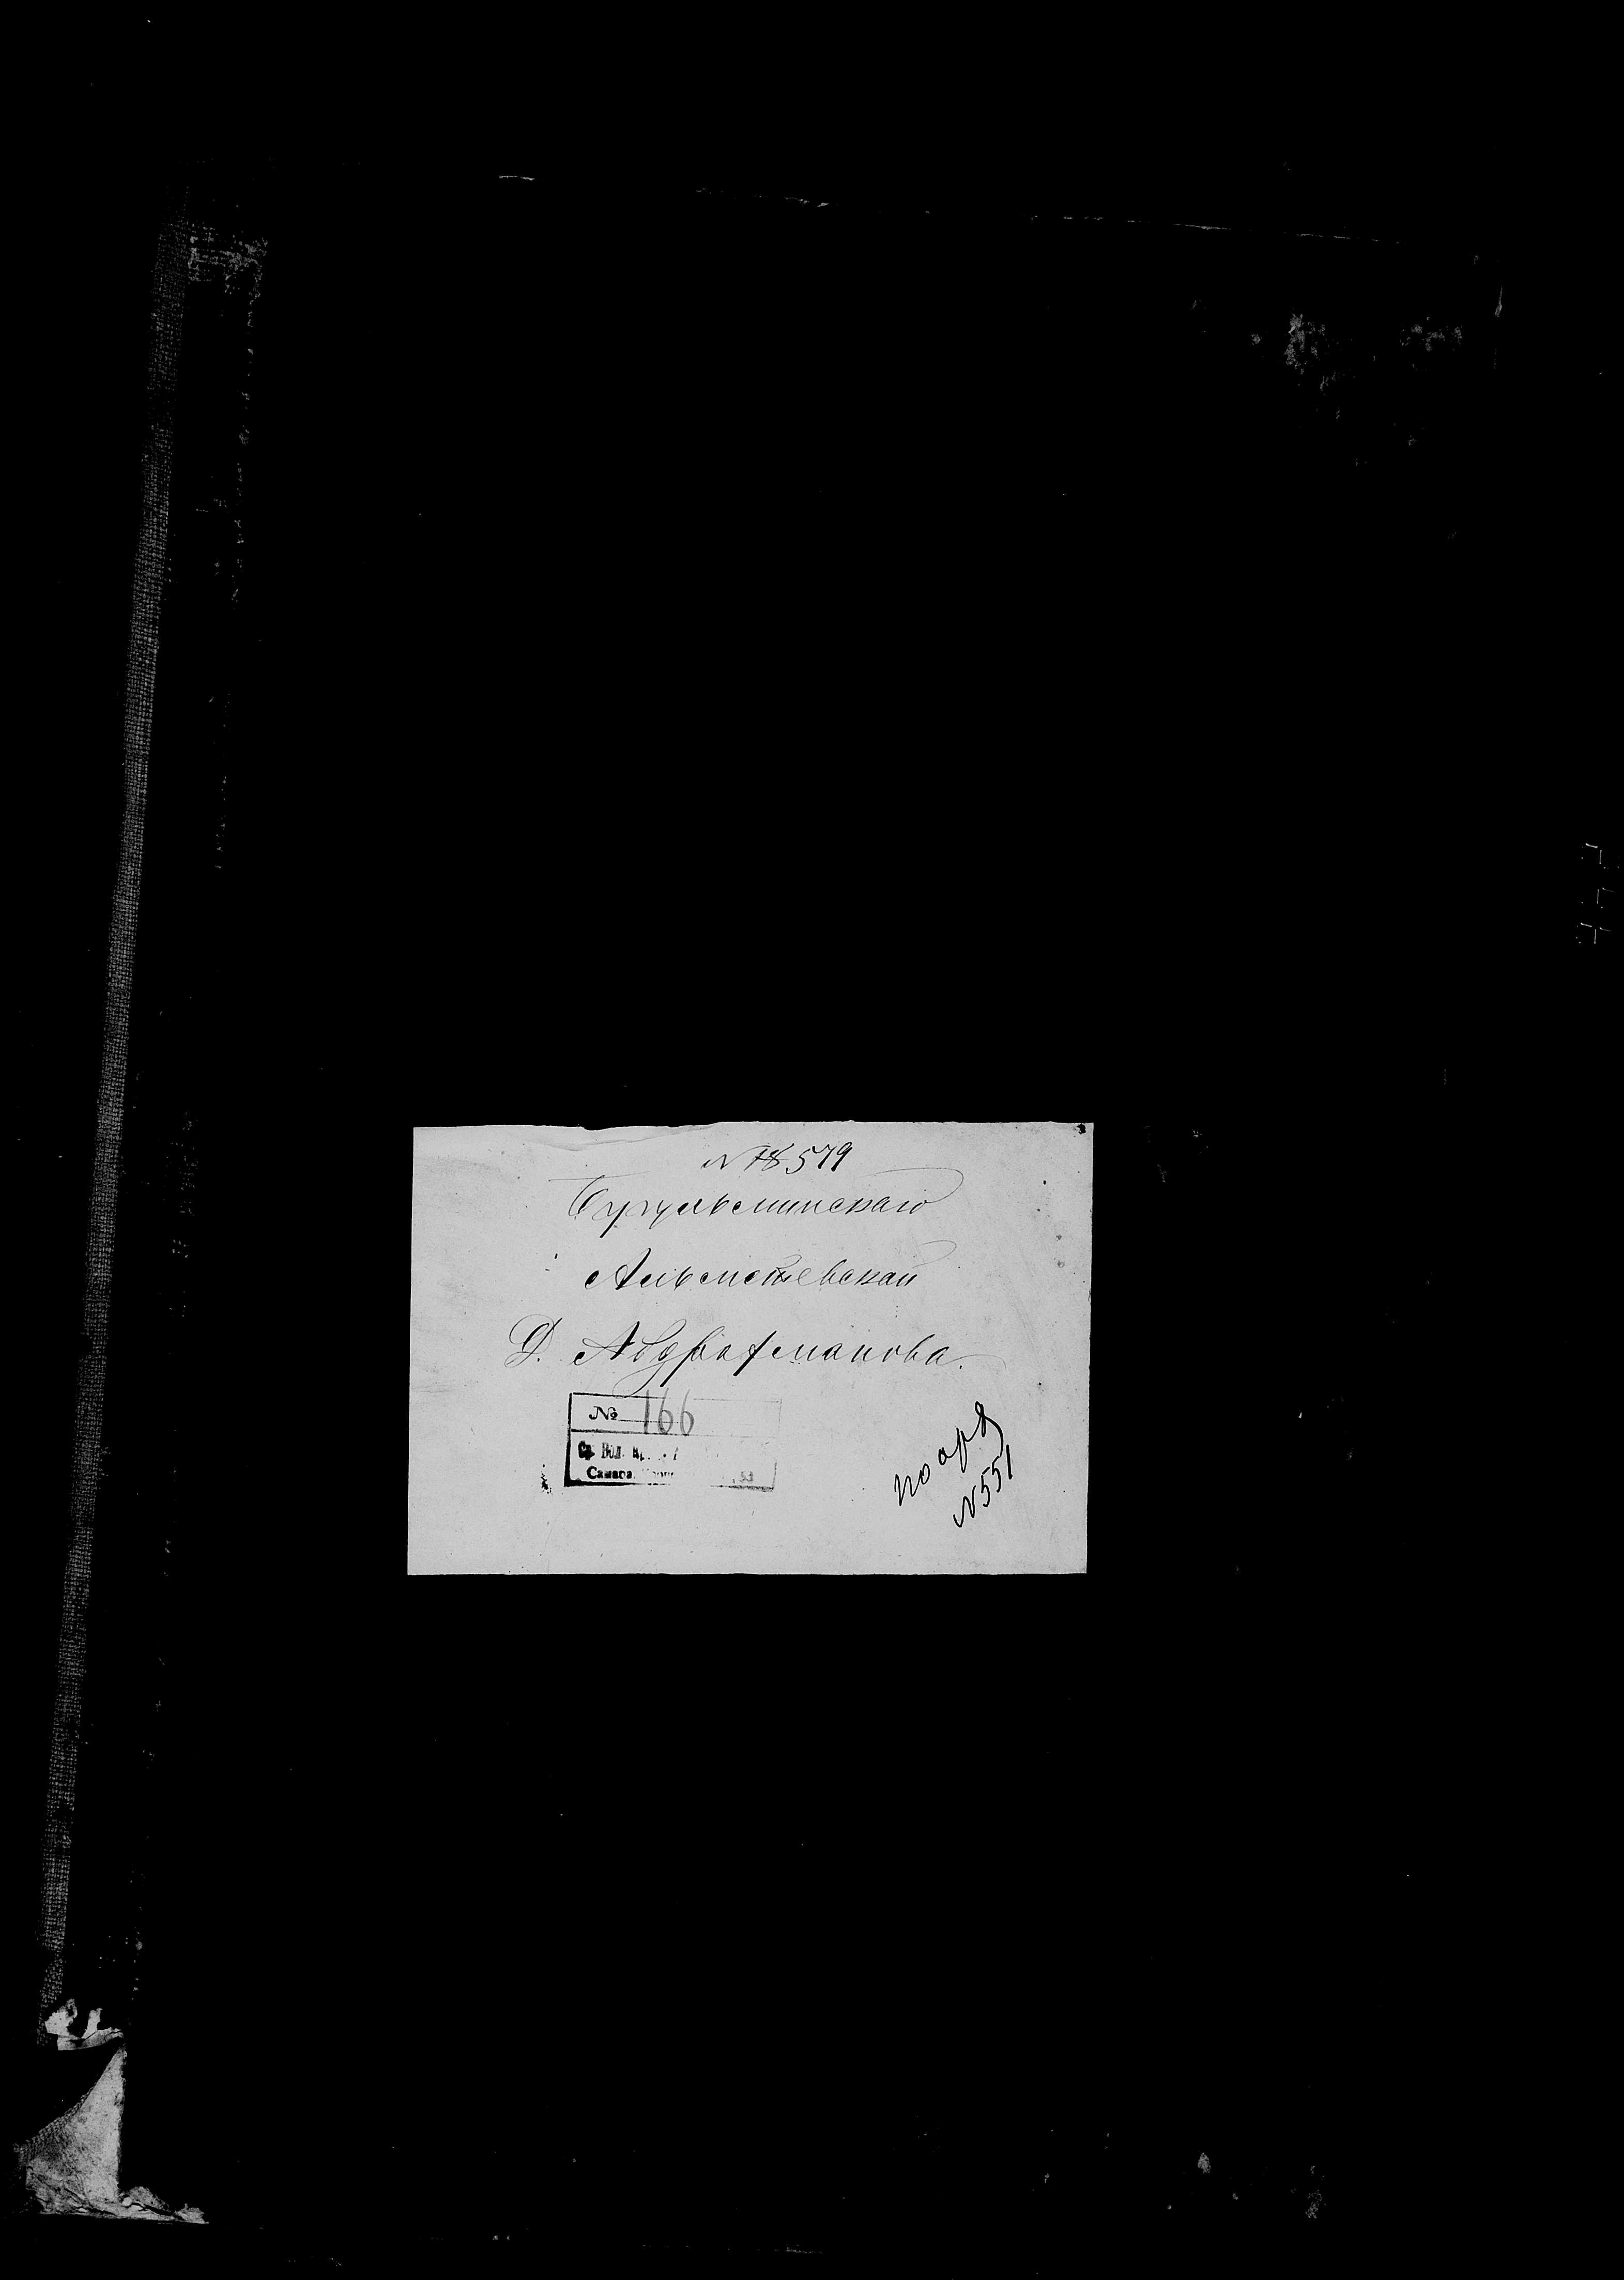 N 18 579
Бугульминскаго
Альметевской
Д. Абдрахманова.
№ 166
Самара
по оря
N 551